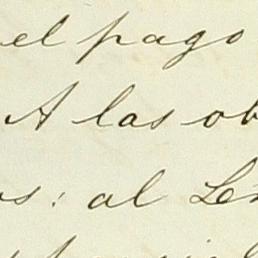 el pago
A las ob
os: al Len